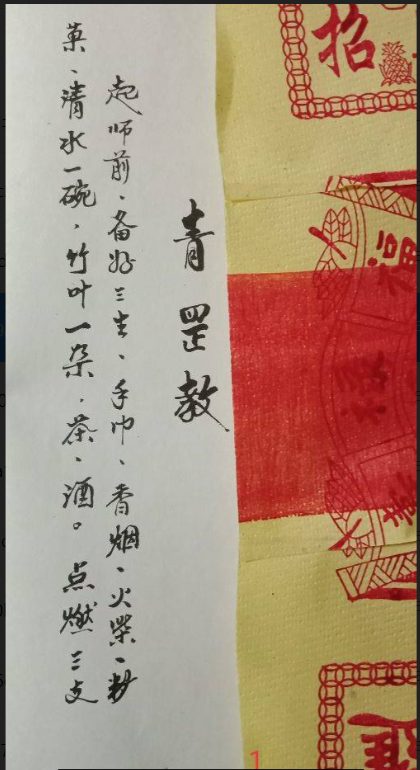 青罡教
起师前、备好三生、手巾、香烟、火柴、粄
菓、清水一碗、竹叶一朵、茶、酒。点燃三支
招
福
1